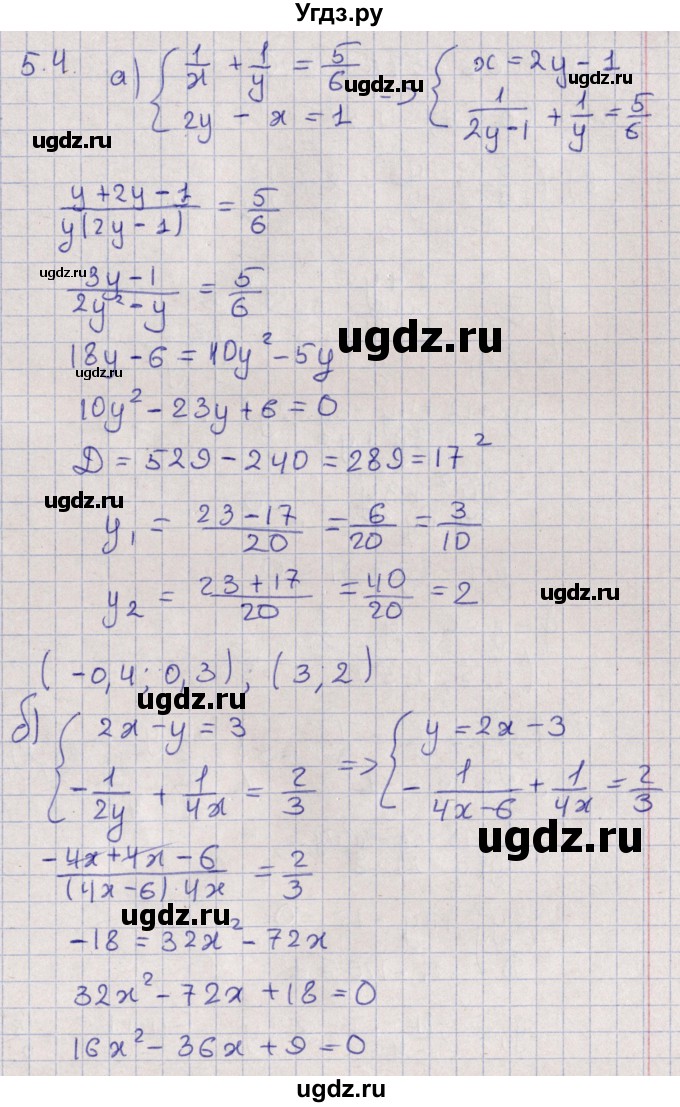 Угдз.ру
5.4. а) { 1/x + 1/y = 5/6 ; 2y - x = 1 => { x = 2y - 1 ; 1/(2y-1) + 1/y = 5/6
ugdz.ru ugdz.ru ugdz.ru ugdz.ru ugdz.ru
(y + 2y - 1)/(y(2y - 1)) = 5/6
(3y - 1)/(2y² - y) = 5/6
ugdz.ru
18y - 6 = 10y² - 5y
ugdz.ru ugdz.ru
10y² - 23y + 6 = 0
Д = 529 - 240 = 289 = 17²
ugdz.ru
y₁ = (23 - 17)/20 = 6/20 = 3/10
y₂ = (23 + 17)/20 = 40/20 = 2
ugdz.ru
(-0,4; 0,3), (3; 2)
ugdz.ru
б) { 2x - y = 3 ; -1/2y + 1/4x = 2/3 => { y = 2x - 3 ; -1/(4x-6) + 1/4x = 2/3
ugdz.ru
(-4x + 4x - 6)/((4x - 6) 4x) = 2/3
ugdz.ru
-18 = 32x² - 72x
32x² - 72x + 18 = 0
16x² - 36x + 9 = 0
ugdz.ru